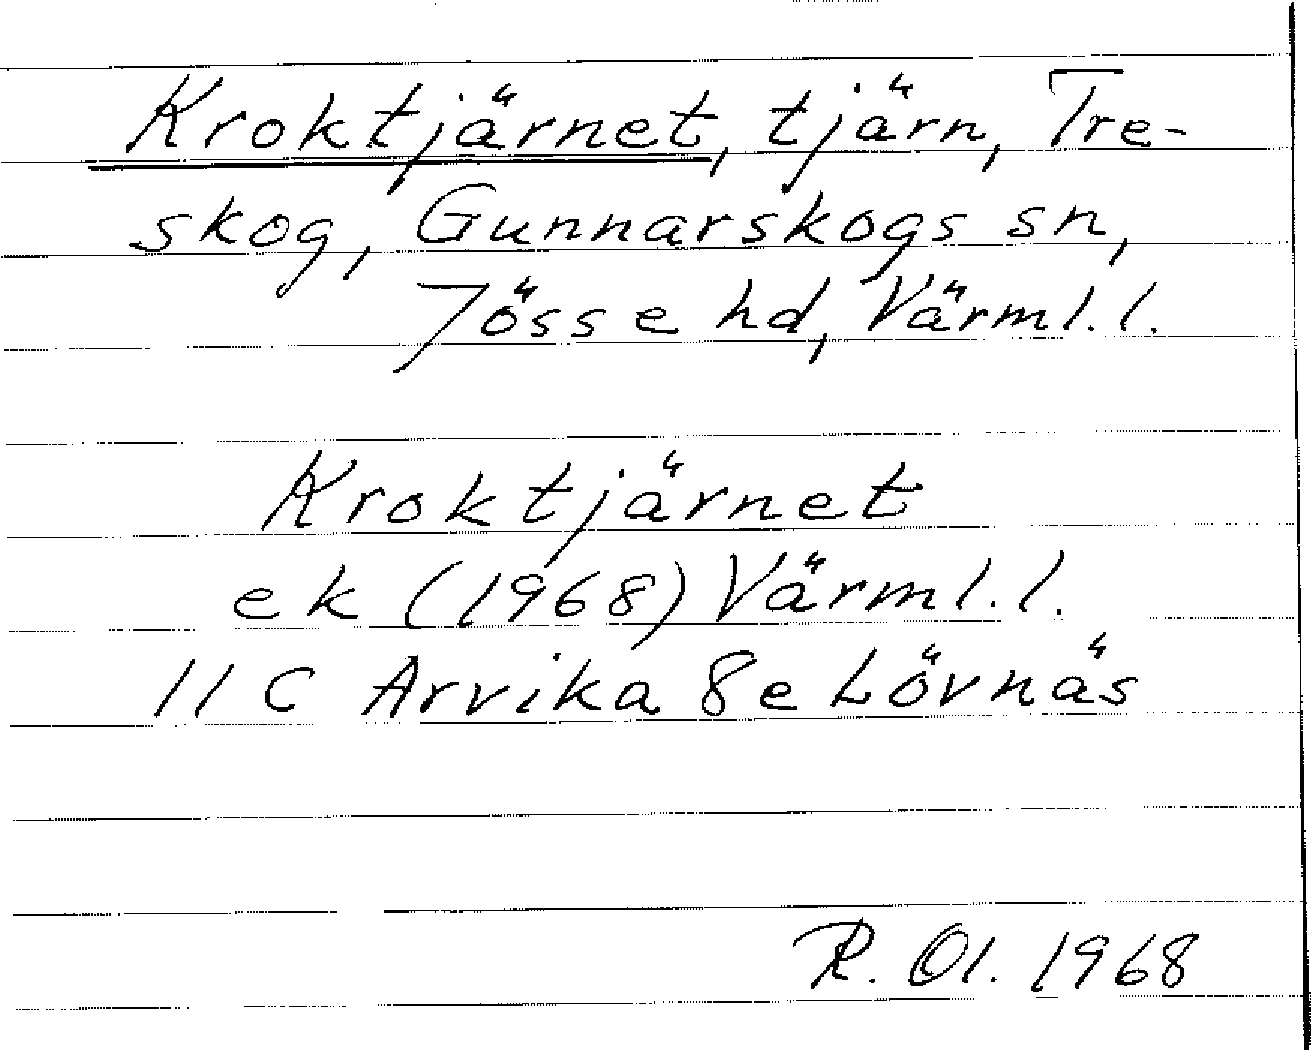 Kroktjärnet, tjärn, Tre-
skog, Gunnarskogs sn,
Jösse hd, Värml. l.
Kroktjärnet
ek (1968) Värml. l.
11 C Arvika 8e Lövnäs
R. Ol. 1968